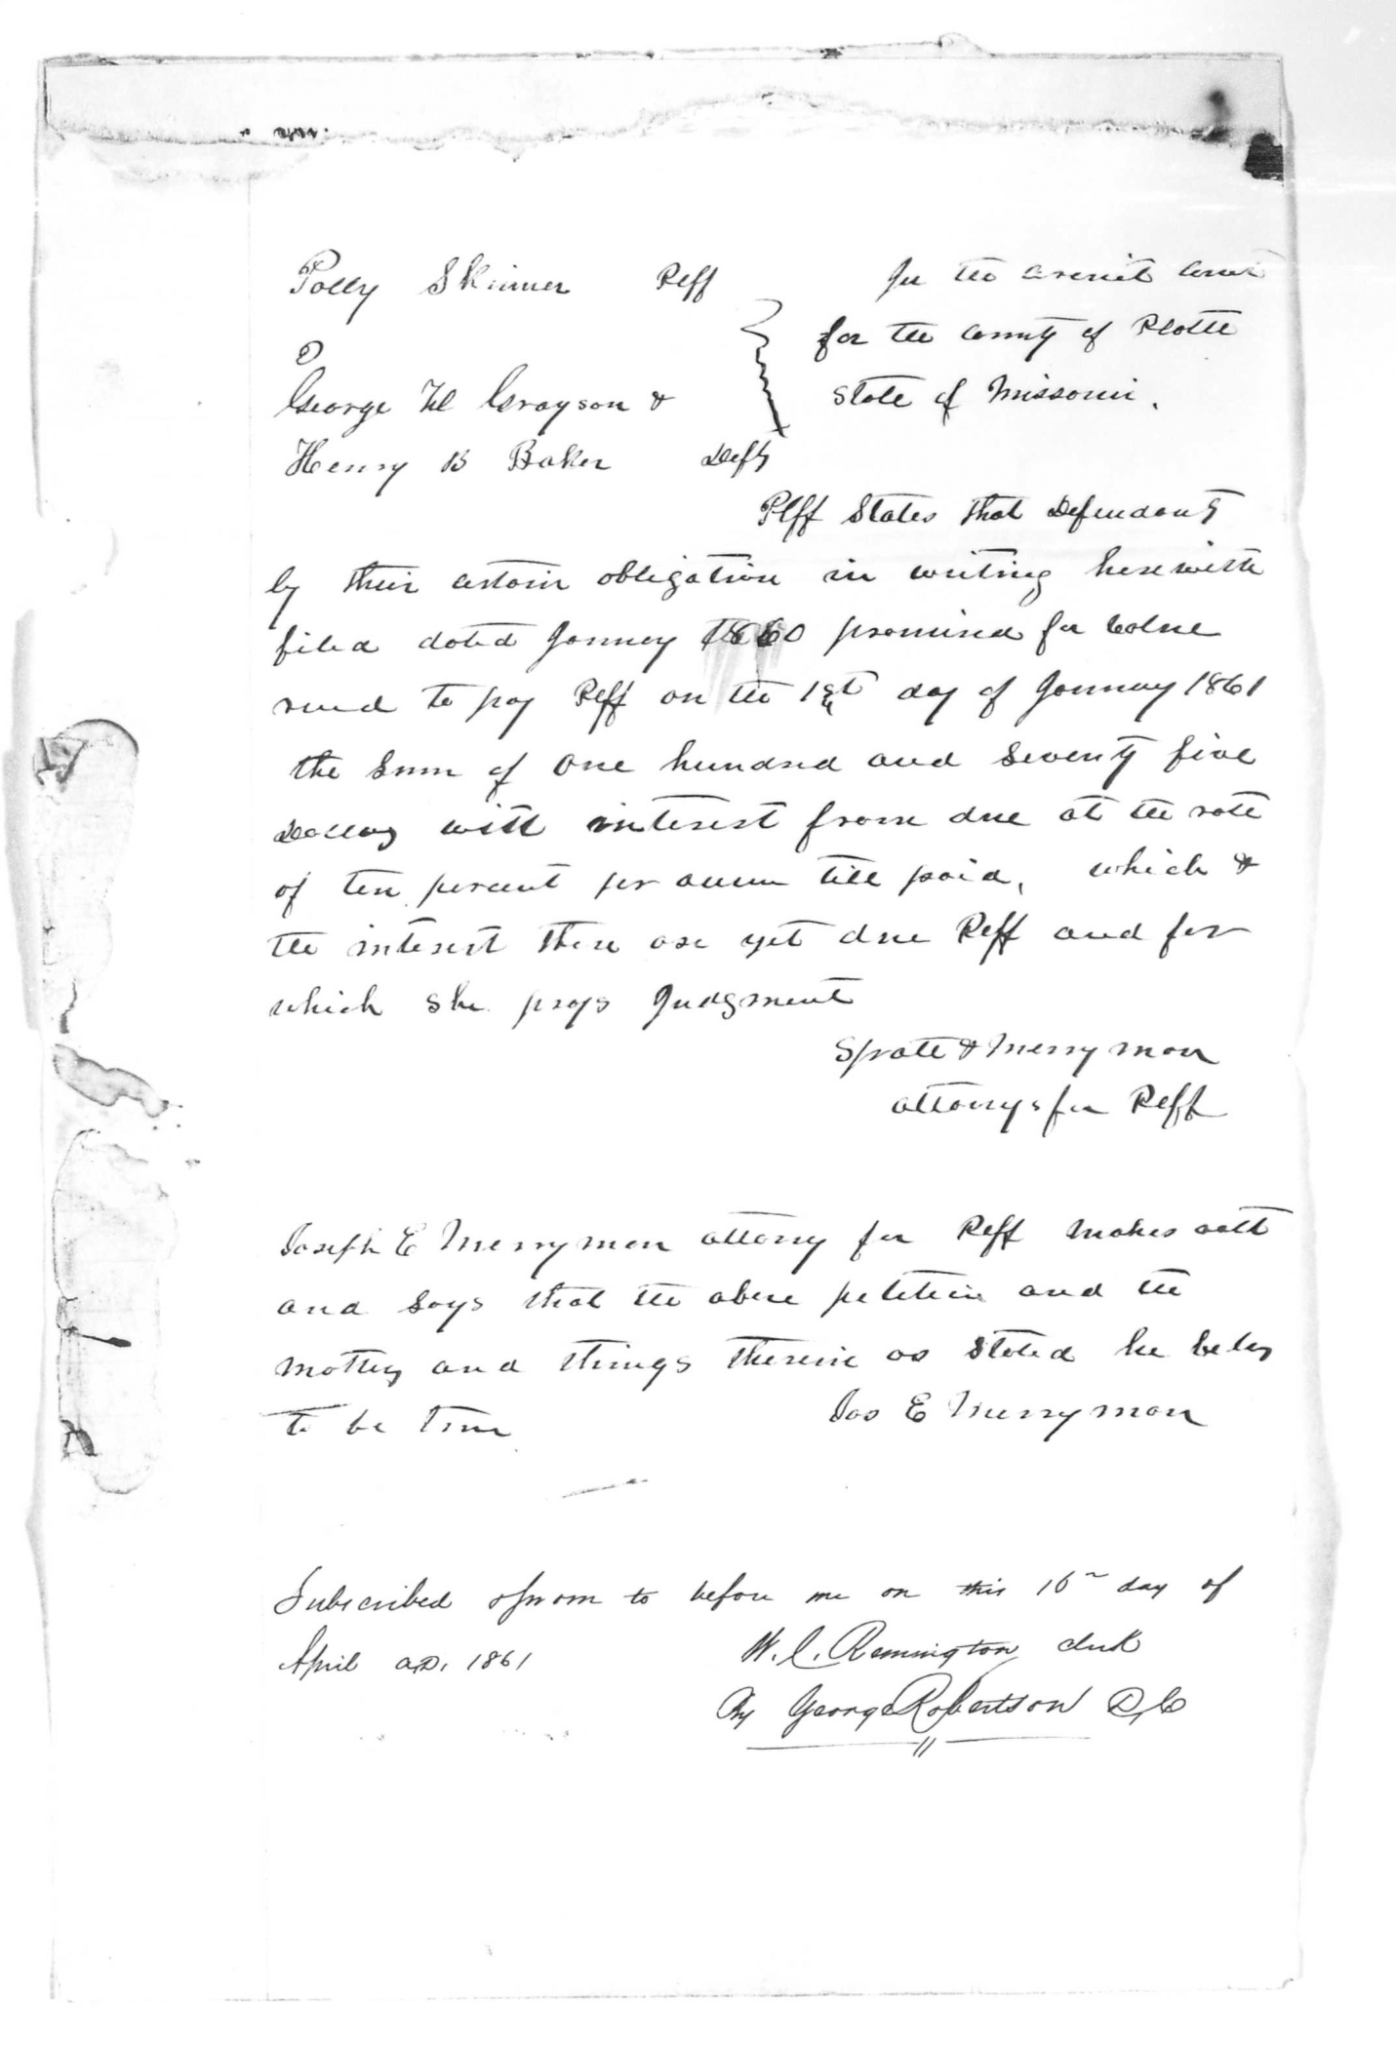 Polly Skinner Plff
In the Circuit Court
for the County of Platte
State of Missouri.
George W Grayson &
Henry B Baker Defts
Plff States that Defendants
by their certain obligation in writing herewith
filed dated January 1860 promised for value
recd to pay Plff on the 1st day of January 1861
the sum of one hundred and seventy five
Dollars with interest from due at the rate
of ten percent per annum till paid, which &
the interest there are yet due Plff and for
which she prays Judgment
Spratt & Merryman
attorneys for Plff
Joseph E Merryman attorney for Plff makes oath
and says that the above petition and the
matters and things therein as stated he belvs
to be true
Jas E Merryman
Subscribed & sworn to before me on this 16th day of
April A.D. 1861
W. C. Remington Clerk
By George Robertson D,C